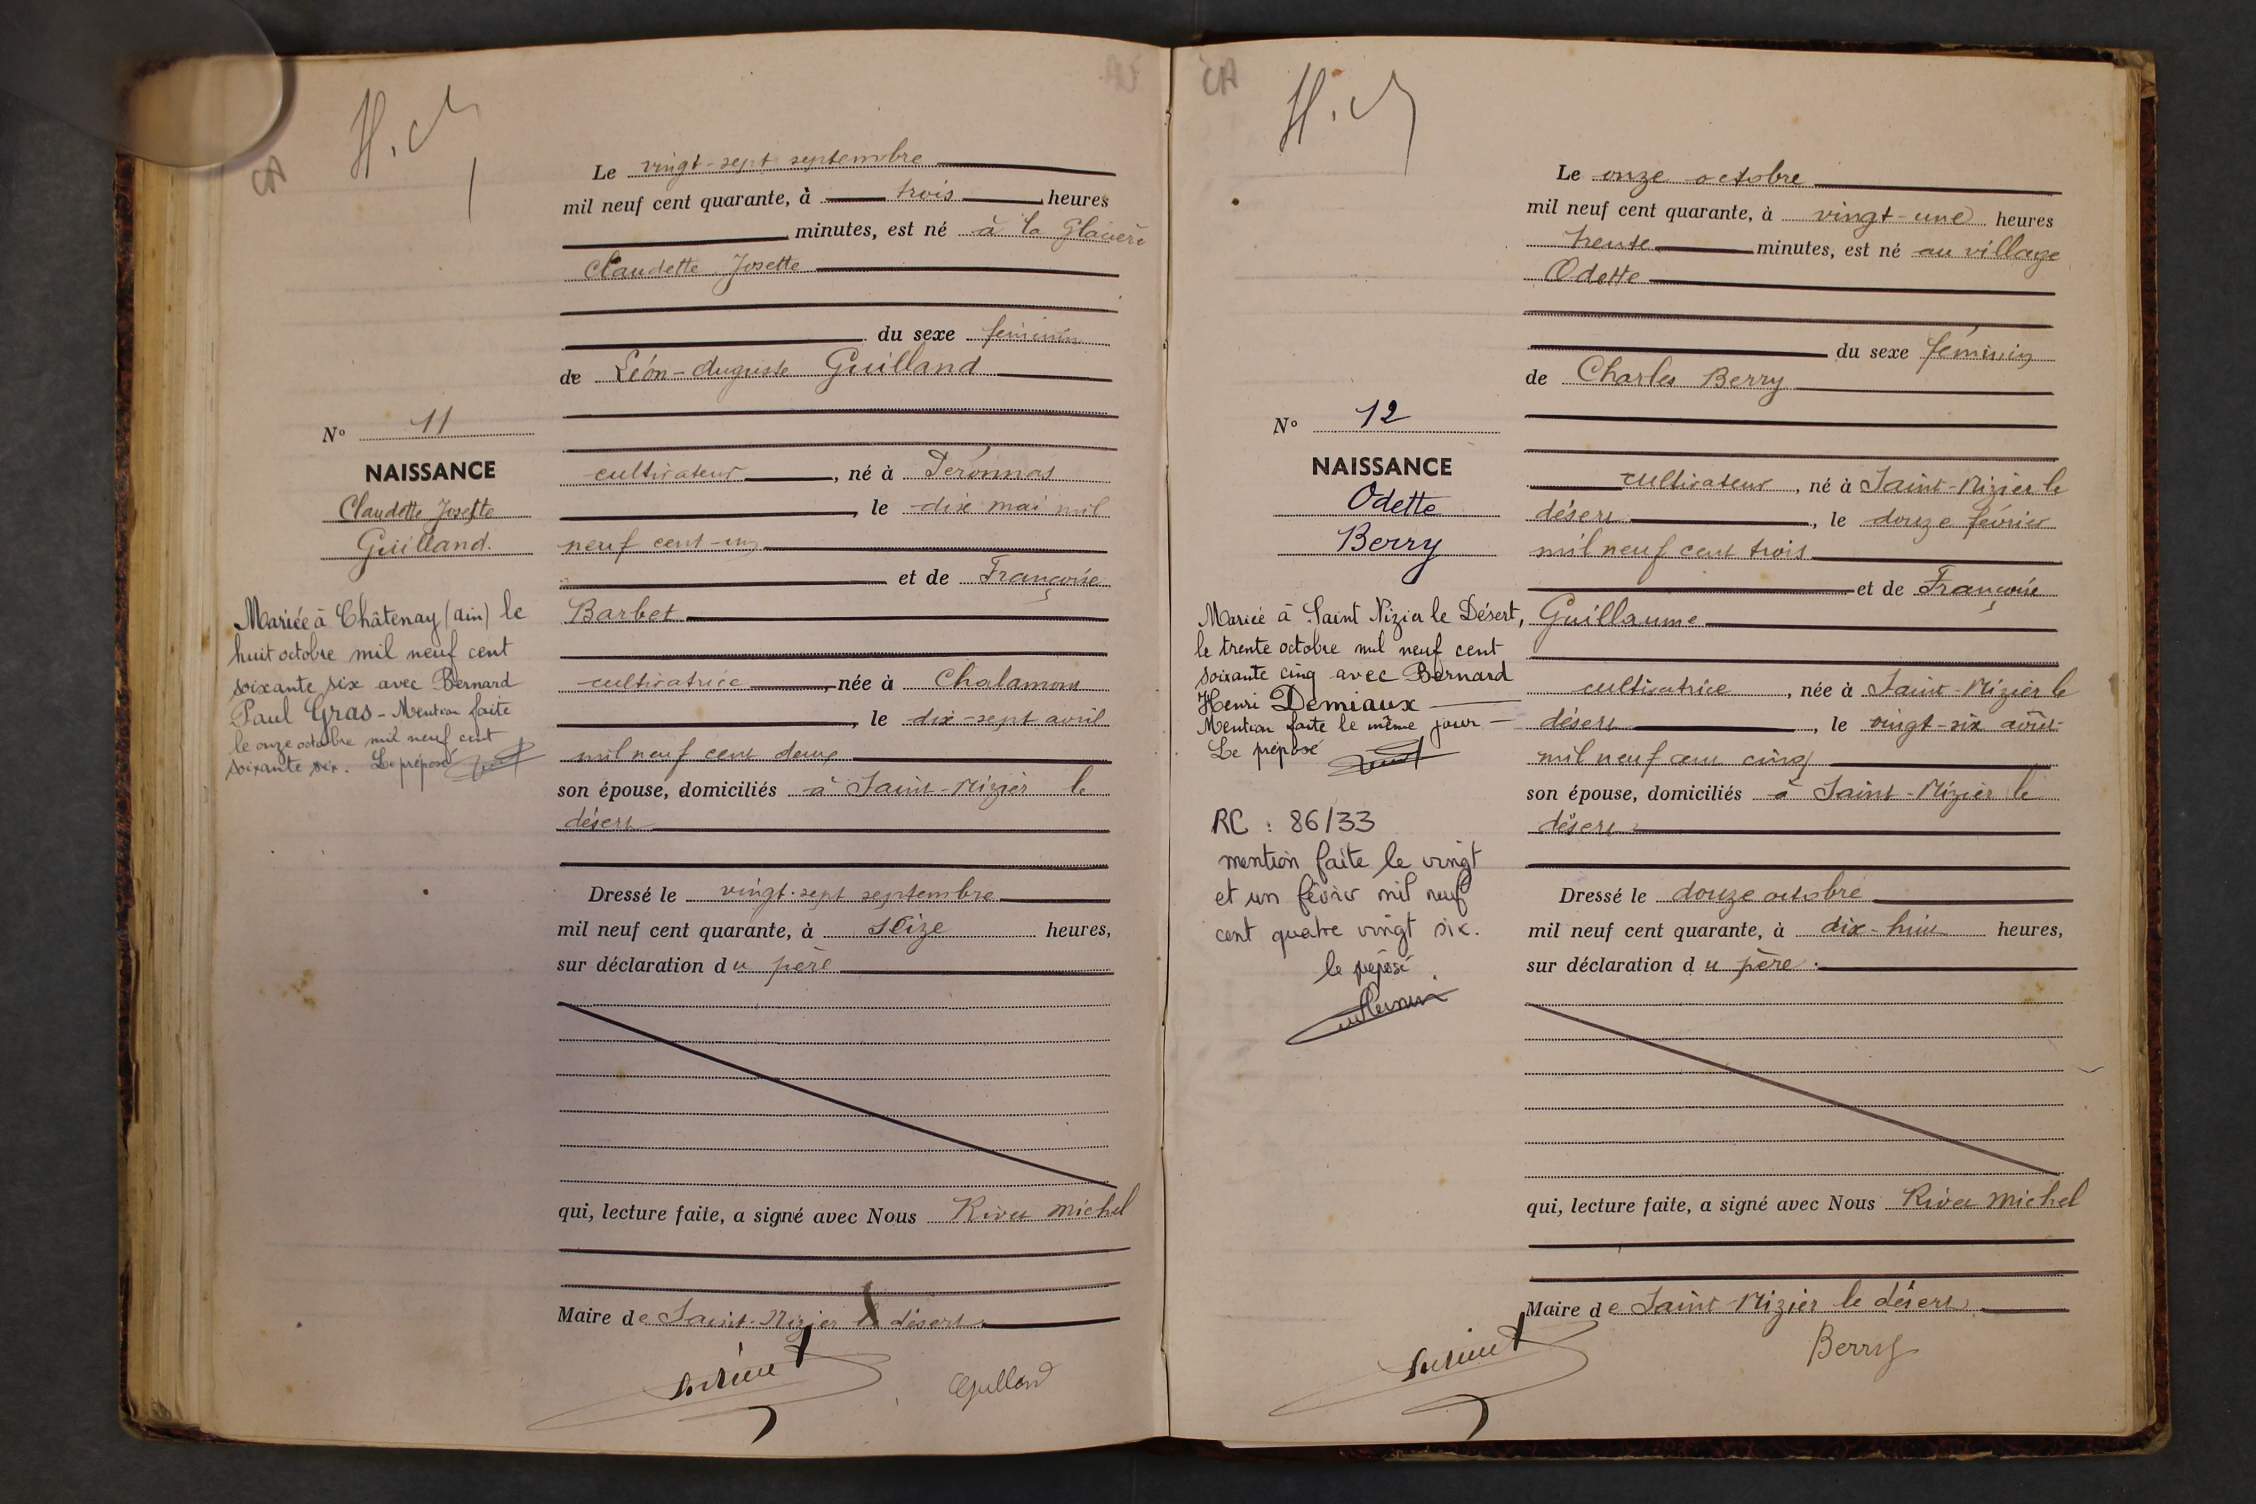 H.
Le vingt-sept septembre
mil neuf cent quarante, à trois heures
minutes, est né à la Glacière
Claudette Josette
du sexe féminin
de Léon-Auguste Guilland
N° 11
NAISSANCE
Claudette Josette
Guilland.
cultivateur, né à Péronnas
, le dix mai mil
neuf cent-un
et de Françoise
Mariée à Châtenay (Ain) le
huit octobre mil neuf cent
soixante six avec Bernard
Paul Gras - Mention faite
le onze octobre mil neuf cent
soixante six. Le préposé
Barbet
cultivatrice, née à Chalamont
, le dix-sept avril
mil neuf cent deux
son épouse, domiciliés à Saint-Nizier le
désert
Dressé le vingt-sept septembre
mil neuf cent quarante, à seize heures,
sur déclaration du père
qui, lecture faite, a signé avec Nous Michel
Maire de Saint-Nizier le désert
H.
Le onze octobre
mil neuf cent quarante, à vingt-une heures
trente minutes, est né au village
Odette
du sexe féminin
de Charles Berry
N° 12
NAISSANCE
Odette
Berry
cultivateur, né à Saint-Nizier le
désert, le douze février
mil neuf cent trois
et de Françoise
Mariée à Saint Nizier le Désert,
le trente octobre mil neuf cent
soixante cinq avec Bernard
Henri Demiaux
Mention faite le même jour
Le préposé
RC : 86/33
mention faite le vingt
et un février mil neuf
cent quatre vingt six.
le préposé
Guillaume
cultivatrice, née à Saint-Nizier le
désert, le vingt-six août
mil neuf cent cinq
son épouse, domiciliés à Saint-Nizier le
désert
Dressé le douze octobre
mil neuf cent quarante, à dix-huit heures,
sur déclaration du père.
qui, lecture faite, a signé avec Nous Michel
Maire de Saint-Nizier le désert
Berry